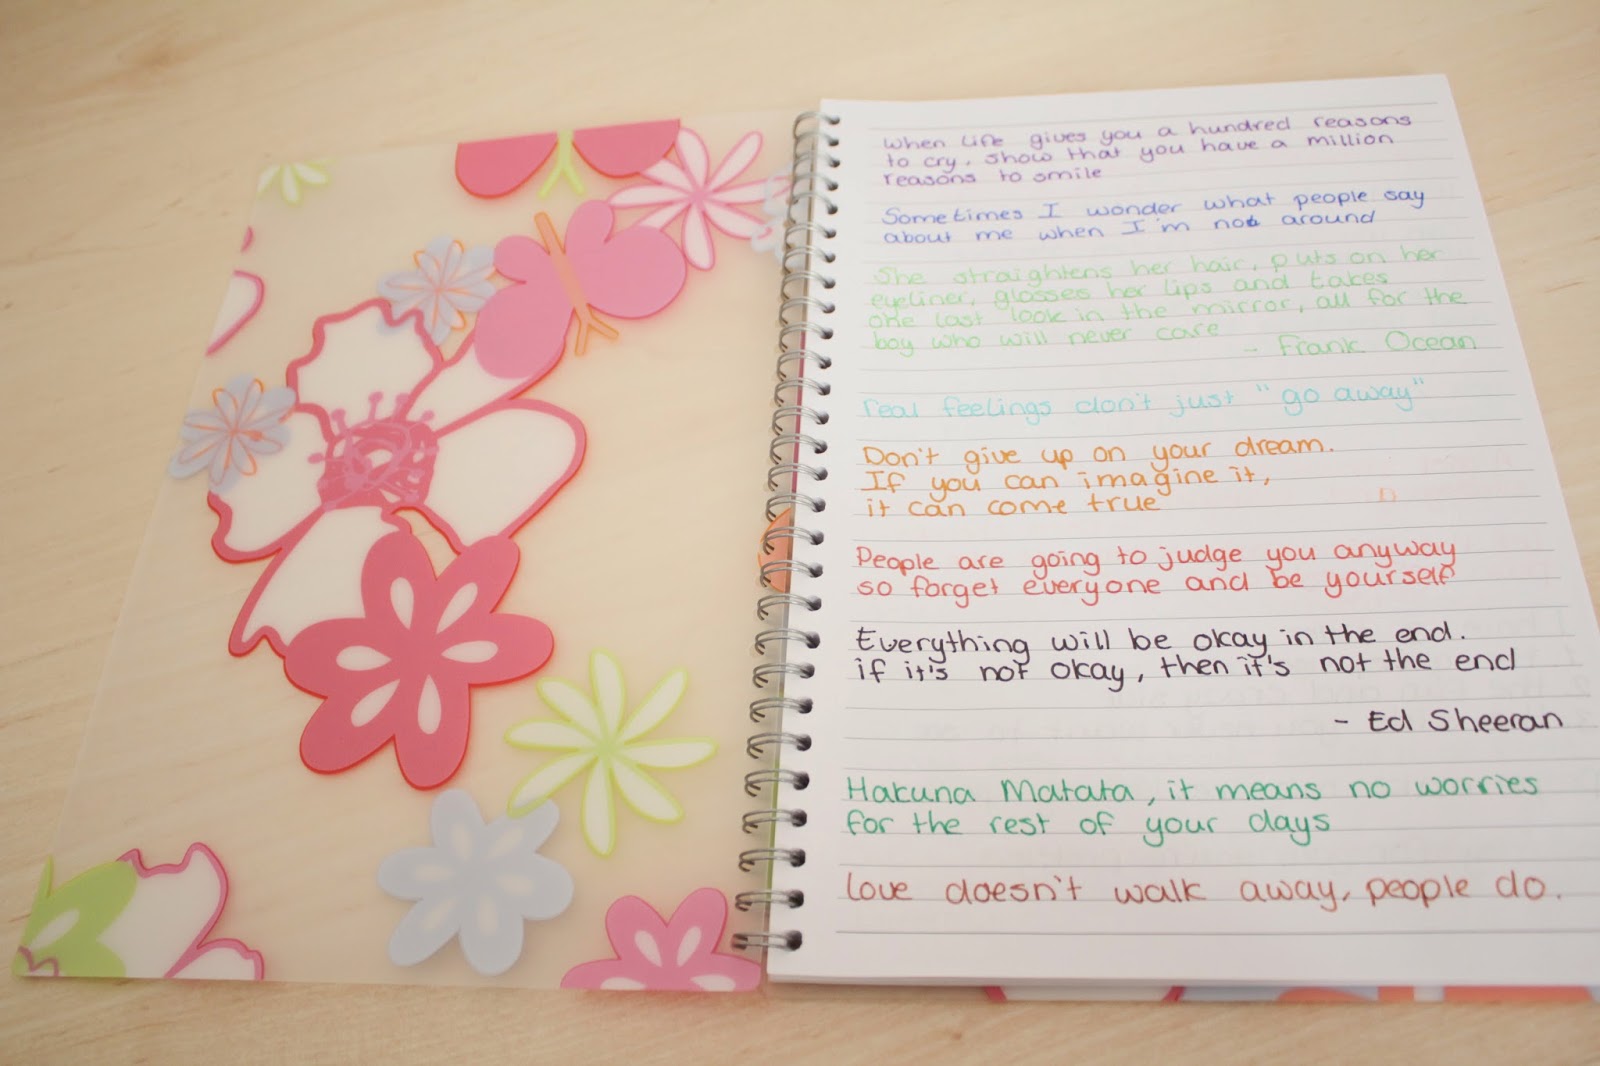 When life gives you a hundred reasons
to cry, show that you have a million
reasons to smile
Sometimes I wonder what people say
about me when I'm not around
She straightens her hair, puts on her
eyeliner, glosses her lips and takes
one last look in the mirror, all for the
boy who will never care
- Frank Ocean
real feelings don't just "go away"
Don't give up on your dream.
If you can imagine it,
it can come true
People are going to judge you anyway
so forget everyone and be yourself
Everything will be okay in the end.
if it's not okay, then it's not the end
- Ed Sheeran
Hakuna Matata, it means no worries
for the rest of your days
love doesn't walk away, people do.